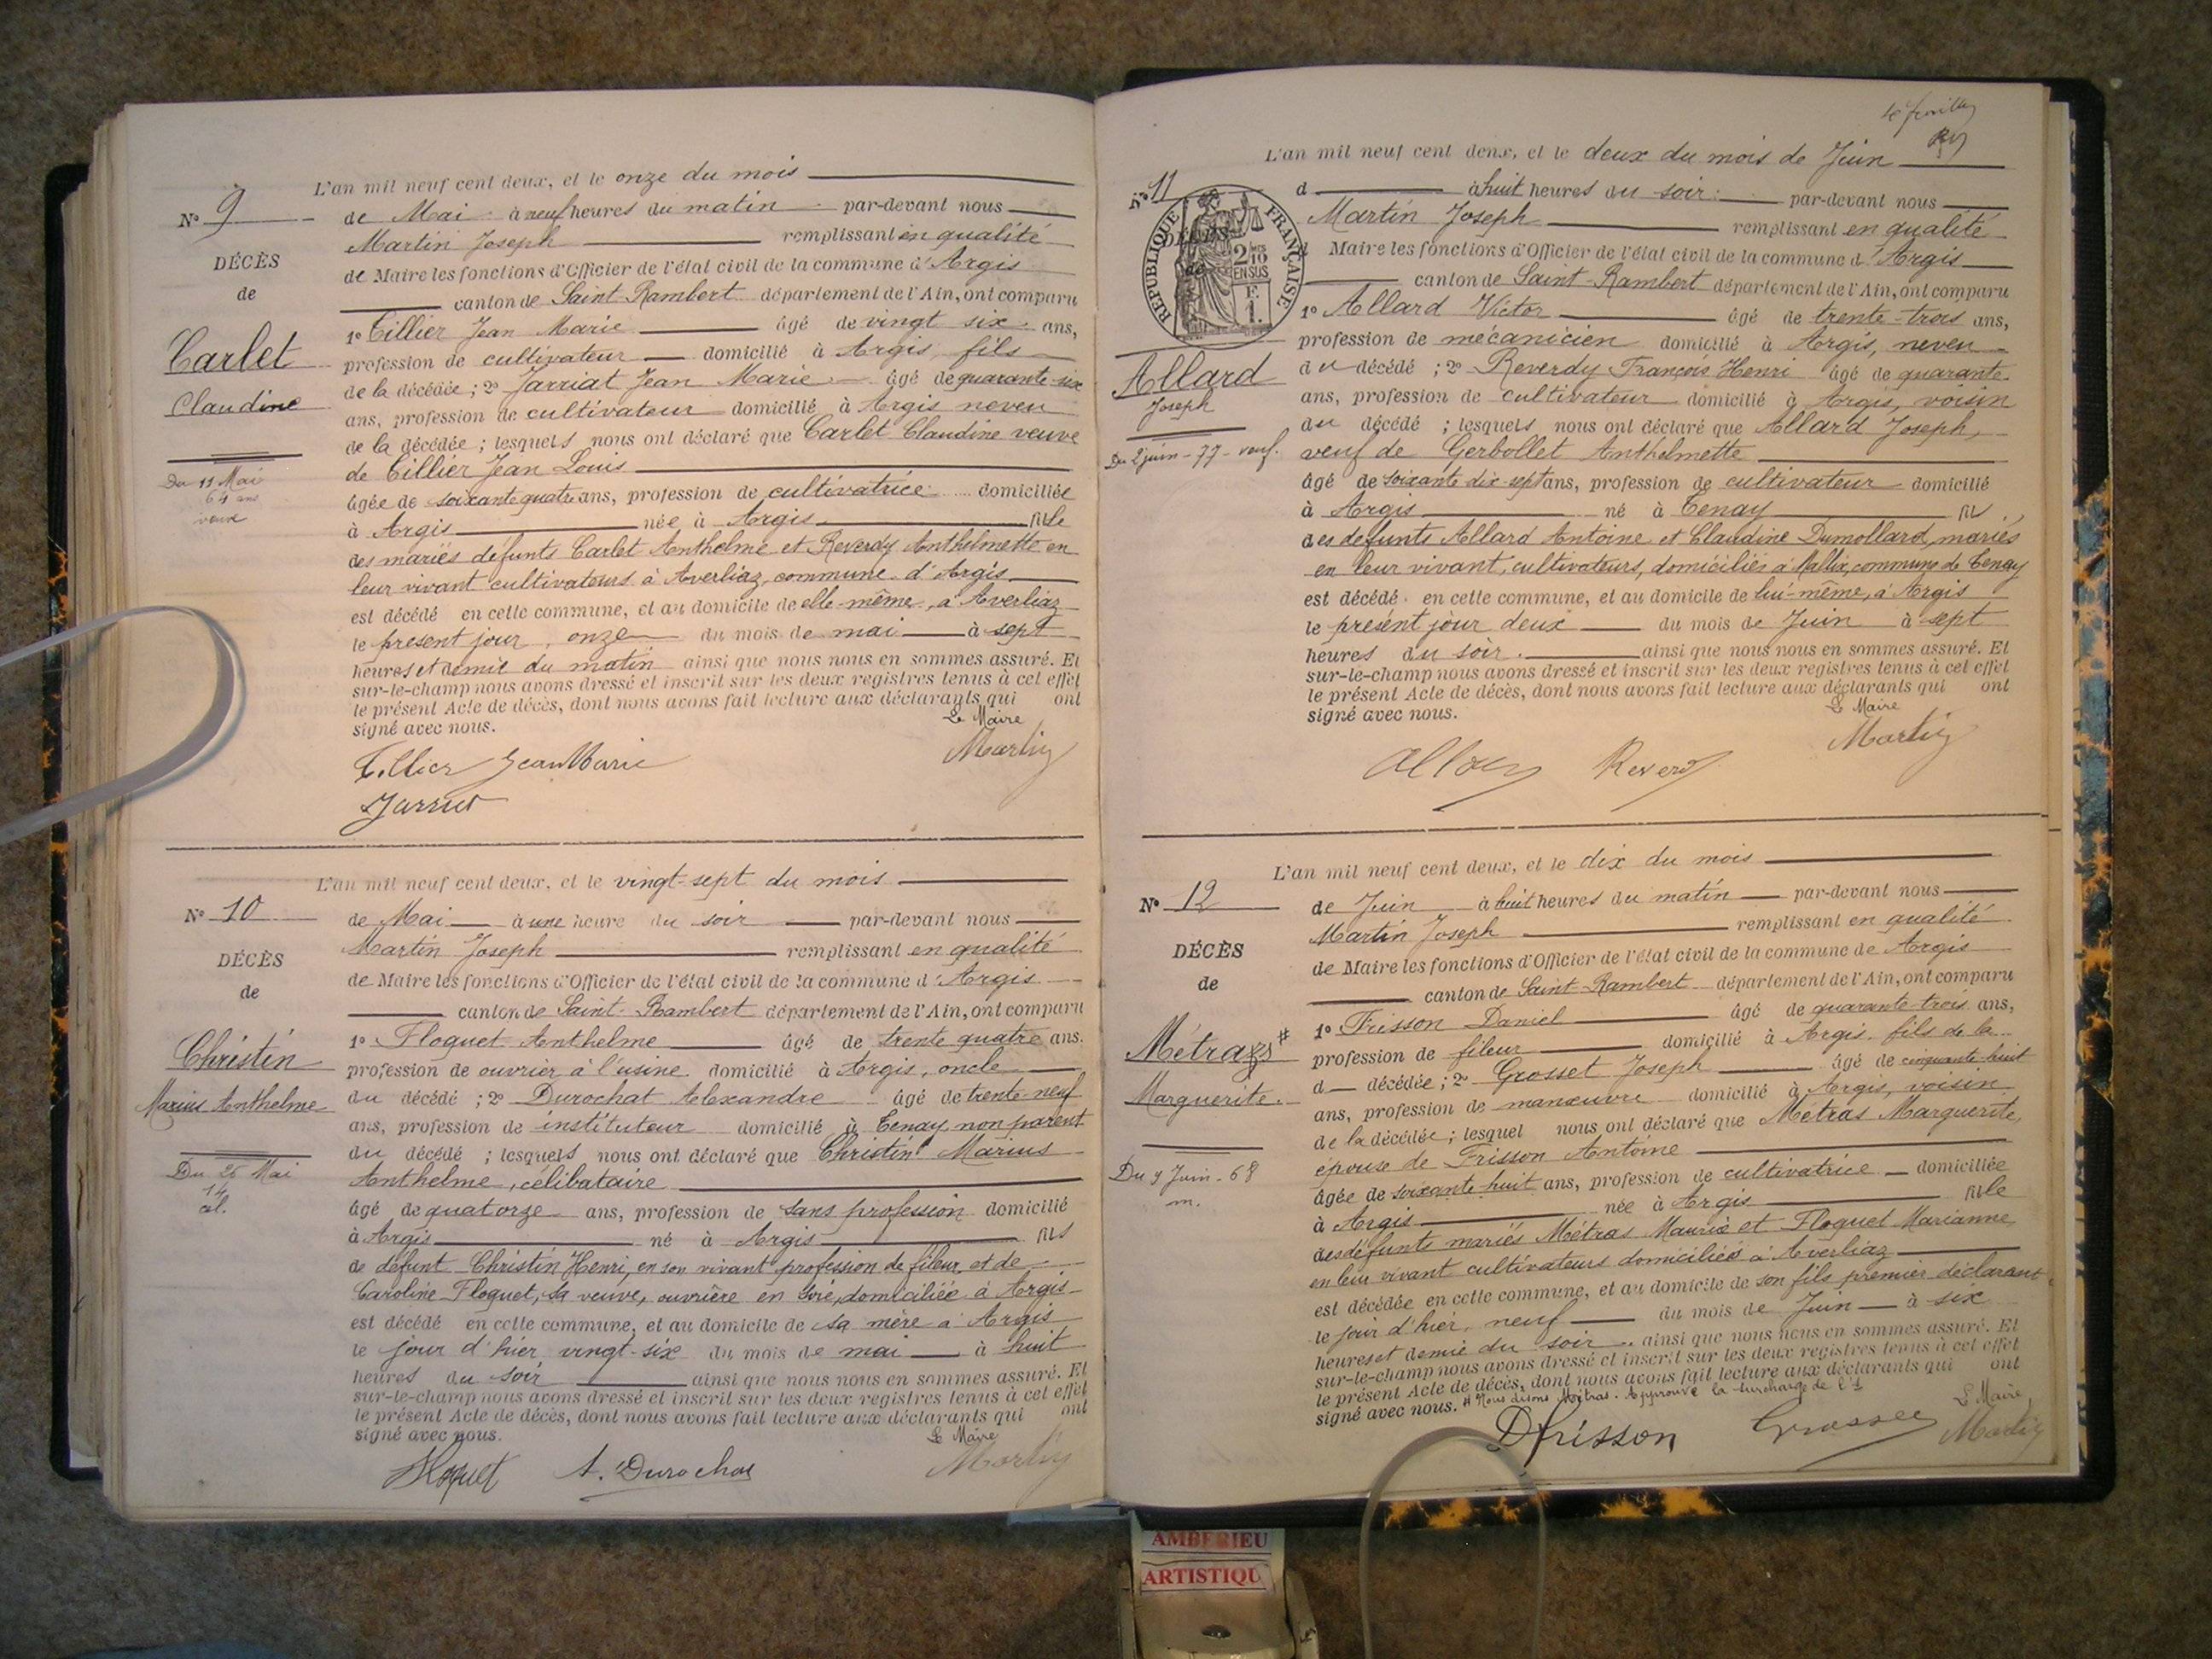 L'an mil neuf cent deux, et le onze du mois
N° 9
de Mai à neuf heures du matin par-devant nous
Martin Joseph remplissant en qualité
DÉCÈS
de Maire les fonctions d'Officier de l'état civil de la commune d'Argis
de
canton de Saint-Rambert département de l'Ain, ont comparu
1° Tillier Jean Marie âgé de vingt six ans,
Carlet
profession de cultivateur domicilié à Argis, fils
de la décédée ; 2° Jarriat Jean Marie âgé de quarante-six
Claudine
ans, profession de cultivateur domicilié à Argis neveu
de la décédée ; lesquels nous ont déclaré que Carlet Claudine veuve
de Tillier Jean Louis
Du 11 Mai
64 ans
veuve
âgée de soixante quatre ans, profession de cultivatrice domiciliée
à Argis née à Argis fille
des mariés défunts Carlet Anthelme et Reverdy Anthelmette en
leur vivant cultivateurs à Averliaz, commune d'Argis
est décédé en cette commune, et au domicile de elle-même, à Averliaz
le present jour, onze du mois de mai à sept
heures et demie du matin ainsi que nous nous en sommes assuré. Et
sur-le-champ nous avons dressé et inscrit sur les deux registres tenus à cet effet
le présent Acte de décès, dont nous avons fait lecture aux déclarants qui ont
signé avec nous.
Le Maire
Tillier Jean Marie Martin
Jarriat
L'an mil neuf cent deux, et le vingt-sept du mois
N° 10
de Mai à une heure du soir par-devant nous
Martin Joseph remplissant en qualité
DÉCÈS
de Maire les fonctions d'Officier de l'état civil de la commune d'Argis
de
canton de Saint-Rambert département de l'Ain, ont comparu
1° Floquet Anthelme âgé de trente quatre ans.
Christin
profession de ouvrier à l'usine domicilié à Argis, oncle
du décédé ; 2° Durochat Alexandre âgé de trente neuf
Marius Anthelme
ans, profession de instituteur domicilié à Tenay, non parent
du décédé ; lesquels nous ont déclaré que Christin Marius
Anthelme, célibataire
Du 26 Mai
14
cél.
âgé de quatorze ans, profession de sans profession domicilié
à Argis né à Argis fils
de défunt Christin Henri, en son vivant profession de fileur, et de
Caroline Floquet, sa veuve, ouvrière en soie, domiciliée à Argis
est décédé en cette commune, et au domicile de sa mère à Argis
le jour d'hier vingt-six du mois de mai à huit
heures du soir ainsi que nous nous en sommes assuré. Et
sur-le-champ nous avons dressé et inscrit sur les deux registres tenus à cet effet
le présent Acte de décès, dont nous avons fait lecture aux déclarants qui ont
signé avec nous.
Le Maire
Floquet A. Durochat Martin
L'an mil neuf cent deux, et le deux du mois de Juin
N° 11
d à huit heures du soir par-devant nous
Martin Joseph remplissant en qualité
RÉPUBLIQUE FRANÇAISE
2/10 EN SUS
F. 1.
DÉCÈS
de
Maire les fonctions d'Officier de l'état civil de la commune d'Argis
canton de Saint-Rambert département de l'Ain, ont comparu
1° Allard Victor âgé de trente-trois ans,
profession de mécanicien domicilié à Argis, neveu
Allard
Joseph
du décédé ; 2° Reverdy François Henri âgé de quarante
ans, profession de cultivateur domicilié à Argis, voisin
du décédé ; lesquels nous ont déclaré que Allard Joseph,
Du 2 juin - 77 - veuf.
veuf de Gerbollet Anthelmette
âgé de soixante dix-sept ans, profession de cultivateur domicilié
à Argis né à Tenay fil
des défunts Allard Antoine et Claudine Dumollard, mariés
en leur vivant, cultivateurs, domiciliés à Mallix, commune de Tenay
est décédé en cette commune, et au domicile de lui-même, à Argis
le présent jour deux du mois de Juin à sept
heures du soir. ainsi que nous nous en sommes assuré. Et
sur-le-champ nous avons dressé et inscrit sur les deux registres tenus à cet effet
le présent Acte de décès, dont nous avons fait lecture aux déclarants qui ont
signé avec nous.
Le Maire
Allard Reverdy Martin
L'an mil neuf cent deux, et le dix du mois
N° 12
de Juin à huit heures du matin par-devant nous
Martin Joseph remplissant en qualité
DÉCÈS
de Maire les fonctions d'Officier de l'état civil de la commune de Argis
de
canton de Saint-Rambert département de l'Ain, ont comparu
1° Frisson Daniel âgé de quarante-trois ans,
Métrazs #
profession de fileur domicilié à Argis, fils de la
d décédée ; 2° Grosset Joseph âgé de cinquante huit
Marguerite.
ans, profession de manœuvre domicilié à Argis, voisin
de la décédée ; lesquel nous ont déclaré que Métras Marguerite,
épouse de Frisson Antoine
Du 9 Juin. 68
m.
âgée de soixante huit ans, profession de cultivatrice domiciliée
à Argis née à Argis fille
des défunts mariés Métras Maurice et Floquet Marianne,
en leur vivant cultivateurs domiciliés à Averliaz
est décédée en cette commune, et au domicile de son fils premier déclarant
le jour d'hier, neuf du mois de Juin à six
heures et demie du soir. ainsi que nous nous en sommes assuré. Et
sur-le-champ nous avons dressé et inscrit sur les deux registres tenus à cet effet
le présent Acte de décès, dont nous avons fait lecture aux déclarants qui ont
signé avec nous. # Nous disons Métras. Approuvé la surcharge de l's
Le Maire
D Frisson Grosset Martin
AMBERIEU
ARTISTIQU